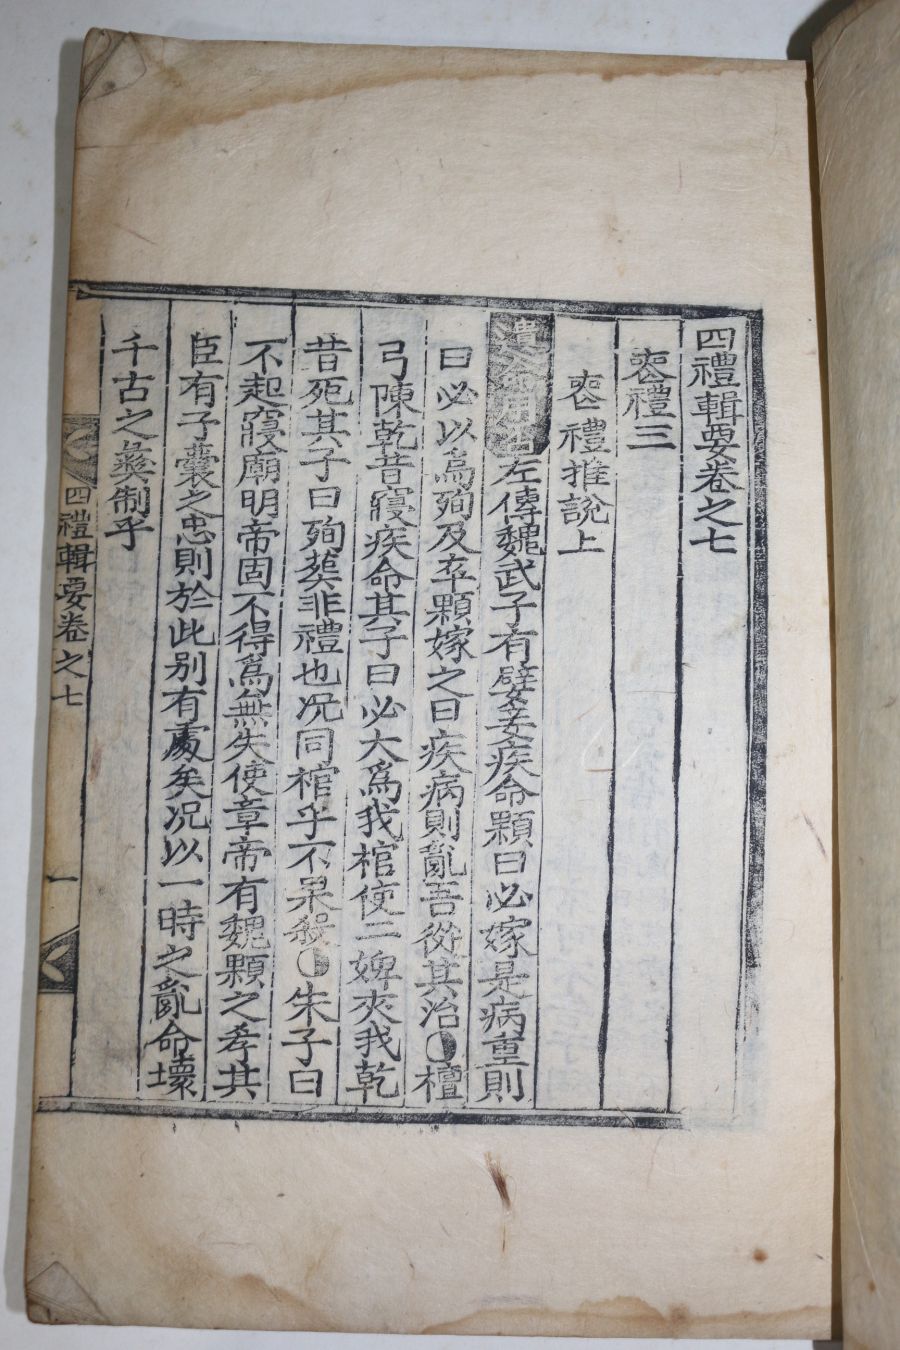 四禮輯要卷之七
喪禮三
喪禮推說上
遺命用治左傳魏武子有嬖妾疾命顆曰必嫁是病重則
曰必以爲殉及卒顆嫁之曰疾病則亂吾從其治○檀
弓陳乾昔寢疾命其子曰必大爲我棺使二婢夾我乾
昔死其子曰殉葬非禮也况同棺乎不果殺○朱子曰
不起寢廟明帝固不得爲無失使章帝有魏顆之孝其
臣有子囊之忠則於此别有處矣况以一時之亂命壞
千古之彜制乎
四禮輯要卷之七
一